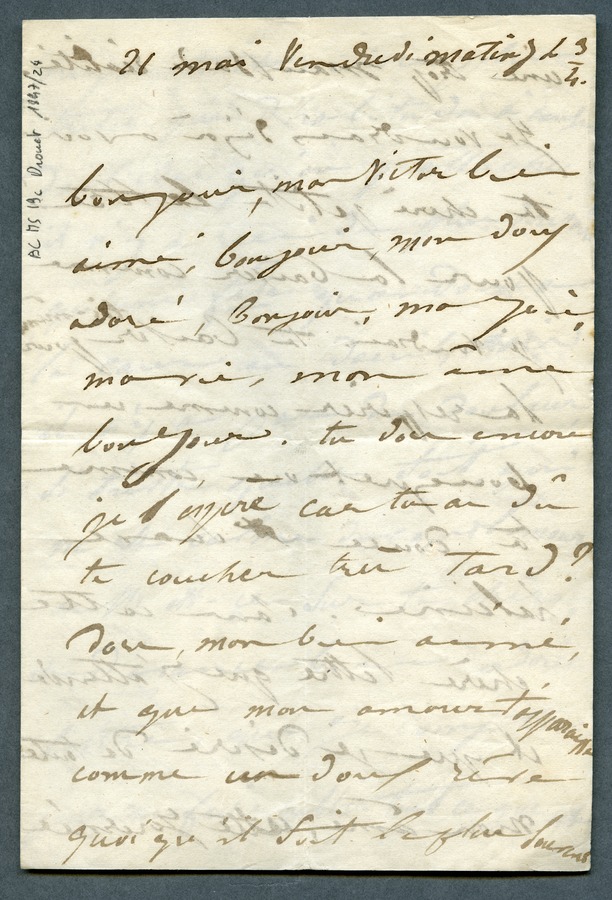 21 mai Vendredi matin 7 h ¾.
BC MS 19c Drouet 1847/24
bonjour, mon Victor bien
aimé, bonjour, mon doux
adoré, bonjour, ma joie,
ma vie, mon âme
bonjour. tu dors encore
je l'espère car tu as dû
te coucher très tard?
Dors, mon bien aimé,
et que mon amour t'apparaisse
comme un doux rêve
quoiqu'il soit le plus